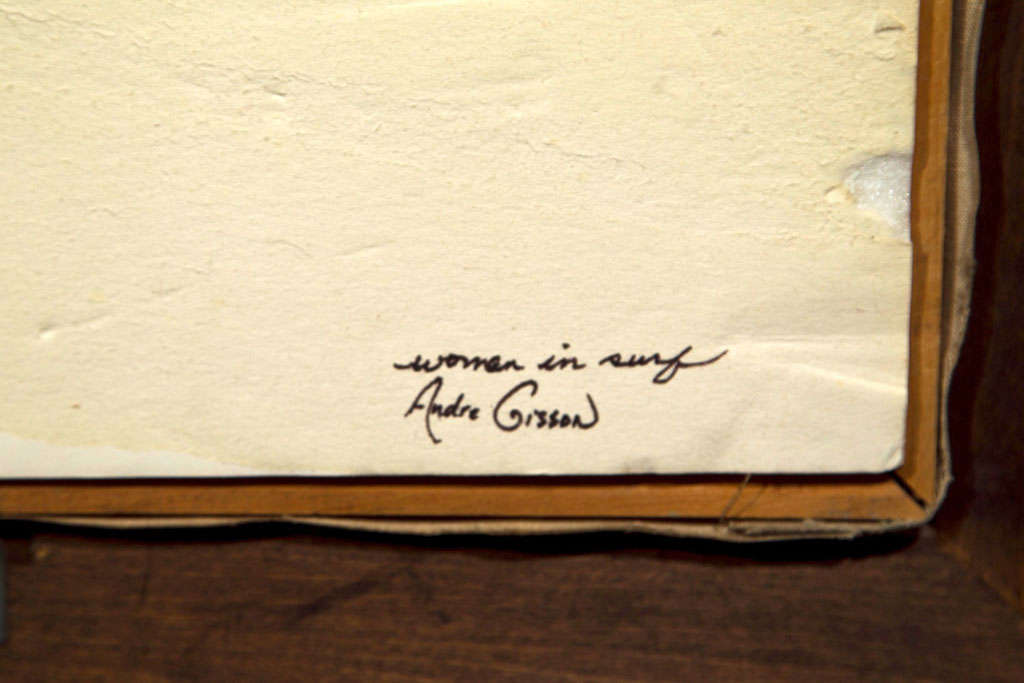 woman in surf
Andre Gisson